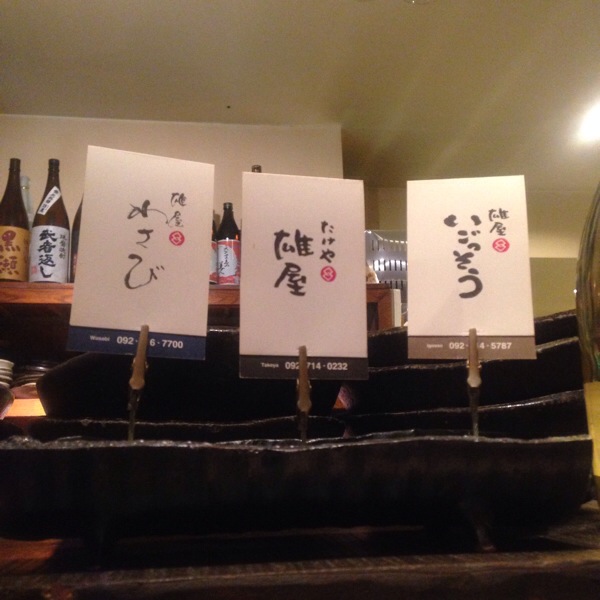 雄屋
わさび
Wasabi 092
6・7700
たけや
雄屋
Takeya 092
714・0232
雄屋
いごっそう
Igosso 092
4・5787
黒瀬
武者返し